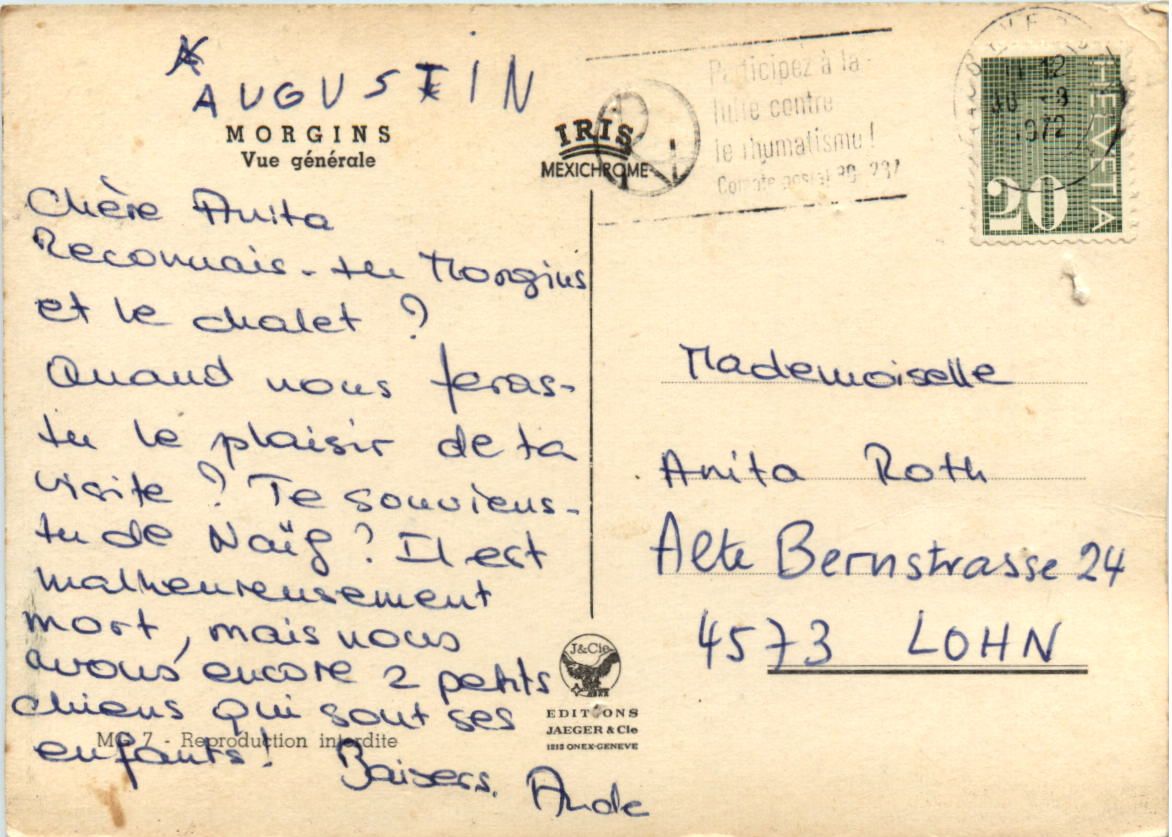 AUGUSTIN
MORGINS
Vue générale
IRIS
MEXICHROME
Participez à la
lutte contre
le rhumatisme !
Compte postal
12
30 -8
972
HELVETIA
20
Chère Anita
Reconnais-tu Morgins
et le chalet ?
Quand nous feras-
tu le plaisir de ta
visite ? Te souviens-
tu de Naïf ? Il est
malheureusement
mort, mais nous
avons encore 2 petits
chiens qui sont ses
enfants ! Baisers.
Aude
MG 7 - Reproduction interdite
J&Cie
EDITIONS
JAEGER & Cie
1213 ONEX-GENEVE
Mademoiselle
Anita Roth
Alte Bernstrasse 24
4573 LOHN